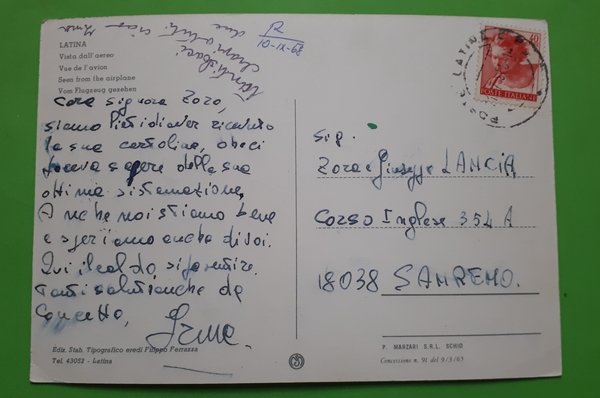 LATINA
Vista dall'aereo
Vue de l'avion
Seen from the airplane
Vom Flugzeug gesehen
R
10-IX-68
Tanti baci
cara signora Zora,
siamo lieti di aver ricevuto
la sua cartolina, e
sapere della sua
ottima sistemazione,
Anche noi stiamo bene
e speriamo anche di voi.
Qui il caldo, si fa sentire.
Tanti saluti anche da
Concetto,
Irma.
Sig.
Zora e Giuseppe LANCIA
Corso Inglese 354 A
18038 SANREMO.
40
POSTE ITALIANE
LATINA
Ediz. Stab. Tipografico eredi Filippo Ferrazza
Tel. 43052 - Latina
P. MARZARI S.R.L. SCHIO
Concessione n. 91 del 9/3/65